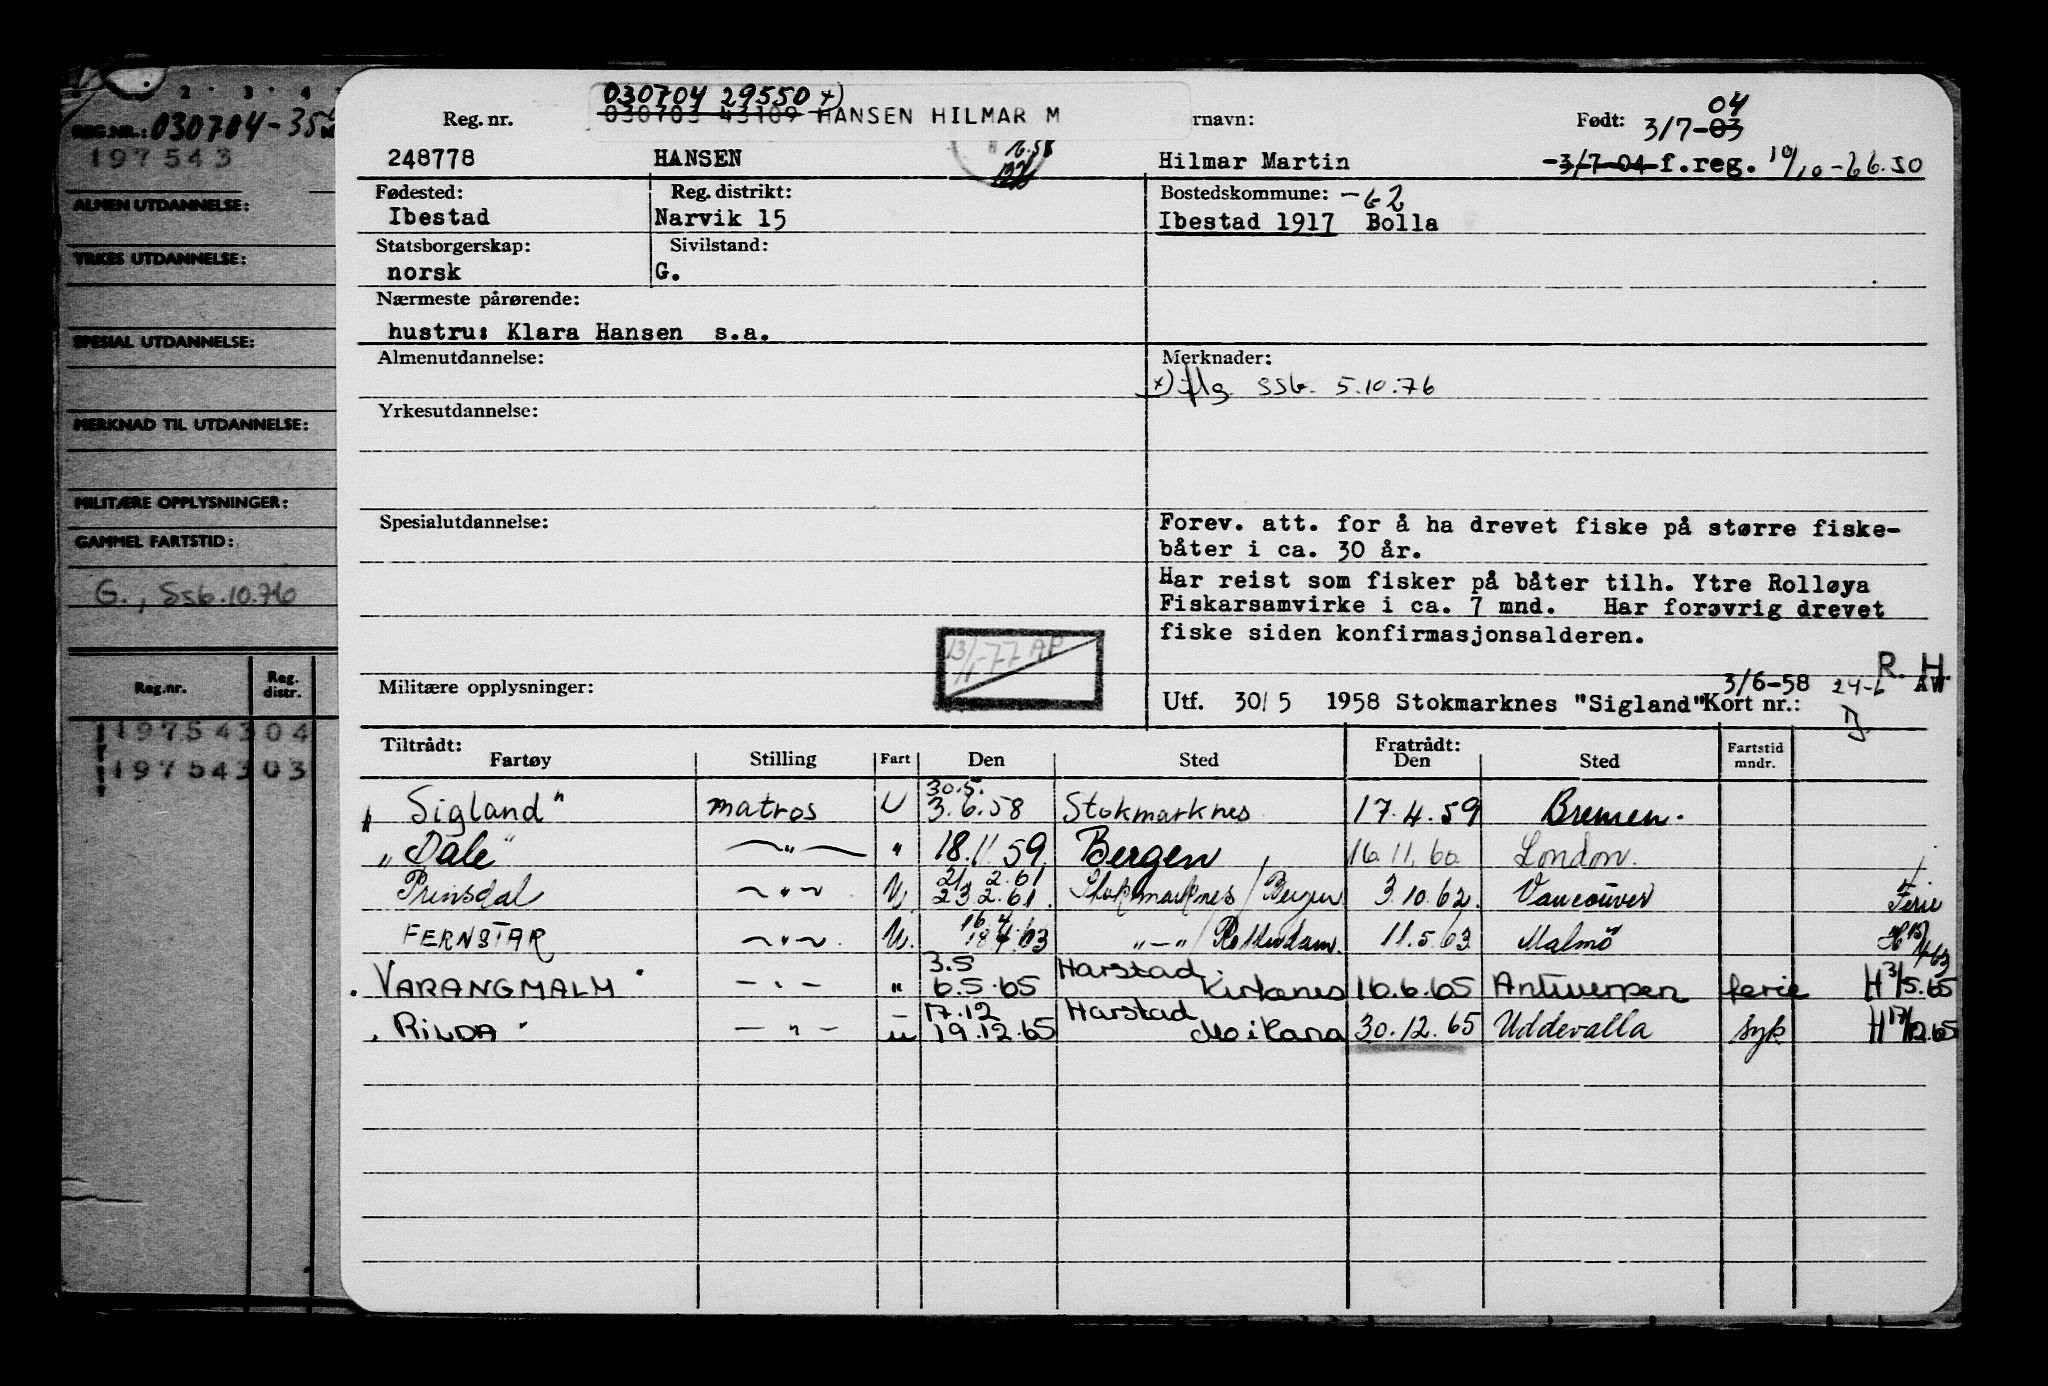 2 3 4
REG.NR.: 030704-35
197543
ALMEN UTDANNELSE:
YRKES UTDANNELSE:
SPESIAL UTDANNELSE:
MERKNAD TIL UTDANNELSE:
MILITÆRE OPPLYSNINGER:
GAMMEL FARTSTID:
G., Ssb.10.76
Reg.nr. Reg. distr.
197543 04
197543 03
030704 29550 x)
Reg. nr. 030703 43109 HANSEN HILMAR M rnavn: Født: 3/7-03 04
248778 HANSEN Hilmar Martin -3/7-04 f.reg. 10/10-66.50
Fødested: Reg. distrikt: Bostedskommune: -62
Ibestad Narvik 15 Ibestad 1917 Bolla
Statsborgerskap: Sivilstand:
norsk G.
Nærmeste pårørende:
hustru: Klara Hansen s.a.
Almenutdannelse: Merknader:
x) iflg. SSb. 5.10.76
Yrkesutdannelse:
Spesialutdannelse:
Forev. att. for å ha drevet fiske på større fiske-
båter i ca. 30 år.
Har reist som fisker på båter tilh. Ytre Rolløya
Fiskarsamvirke i ca. 7 mnd. Har forøvrig drevet
fiske siden konfirmasjonsalderen.
13/1-77 AP
R. H.
Militære opplysninger: 3/6-58 24-6 AW
Utf. 30/5 1958 Stokmarknes "Sigland" Kort nr.:
Tiltrådt: Fratrådt: Fartstid
Fartøy Stilling Fart Den Sted Den Sted mndr.
30.5.
"Sigland" matros U 3.6.58 Stokmarknes 17.4.59 Bremen.
"Dale" — " — " 18.11.59 Bergen 16.11.60 London.
21. 2.61
Prinsdal — " — U 23.2.61. Stokmarknes / Bergen 3.10.62. Vancouver Ferie
16.4.
FERNSTAR — " — U. 18.4.63 " — " / Rotterdam. 11.5.63 Malmö H 15/4 63
3.5 Harstad
VARANGMALM — " — " 6.5.65 Kirkenes 16.6.65 Antwerpen ferie H 3/5.65
17.12 Harstad
RILDA — " — u 19.12.65 Mo i Rana 30.12.65 Uddevalla syk H 17/12.65